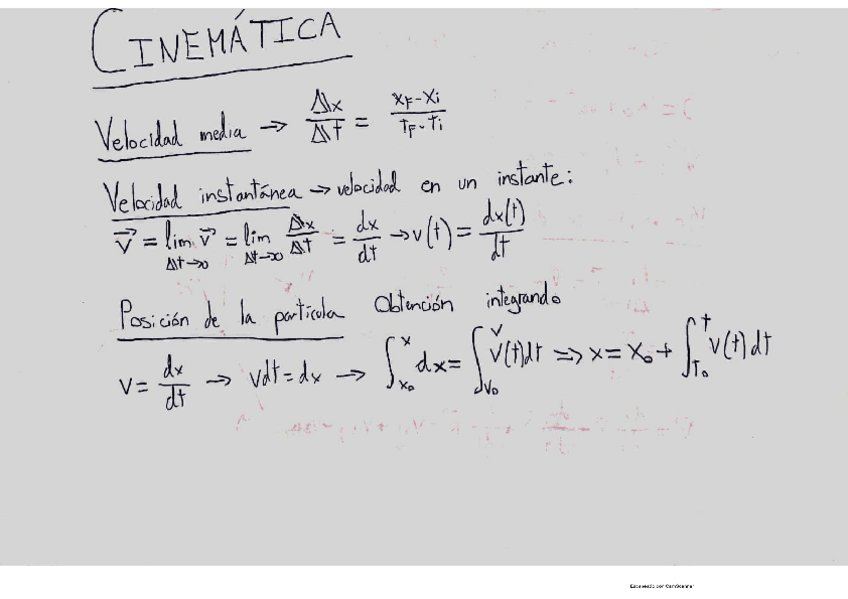 CINEMÁTICA
Velocidad media → Δx/Δt = xF-xi/TF-Ti
Velocidad instantánea → velocidad en un instante:
v⃗ = lim Δt→0 v⃗ = lim Δt→0 Δx/Δt = dx/dt → v(t) = dx(t)/dt
Posición de la partícula Obtención integrando
v = dx/dt → vdt = dx → ∫x₀^x dx = ∫v₀^v v(t)dt => x = x₀ + ∫T₀^t v(t)dt
Escaneado con CamScanner